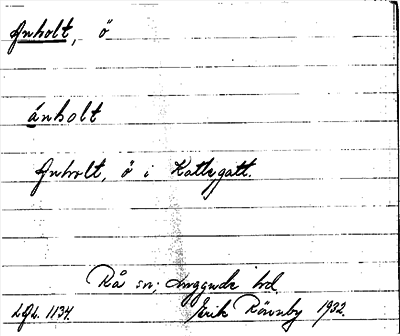 Anholt, ö
ánholt
Anholt, ö i Kattegatt.
Rå sn; Luggude hd.
LGL. 1134. Erik Rönnby 1932.